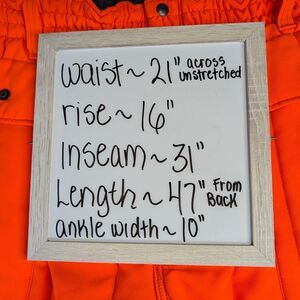 waist ~ 21" across unstretched
rise ~ 16"
Inseam ~ 31"
Length ~ 47" From Back
ankle width ~ 10"